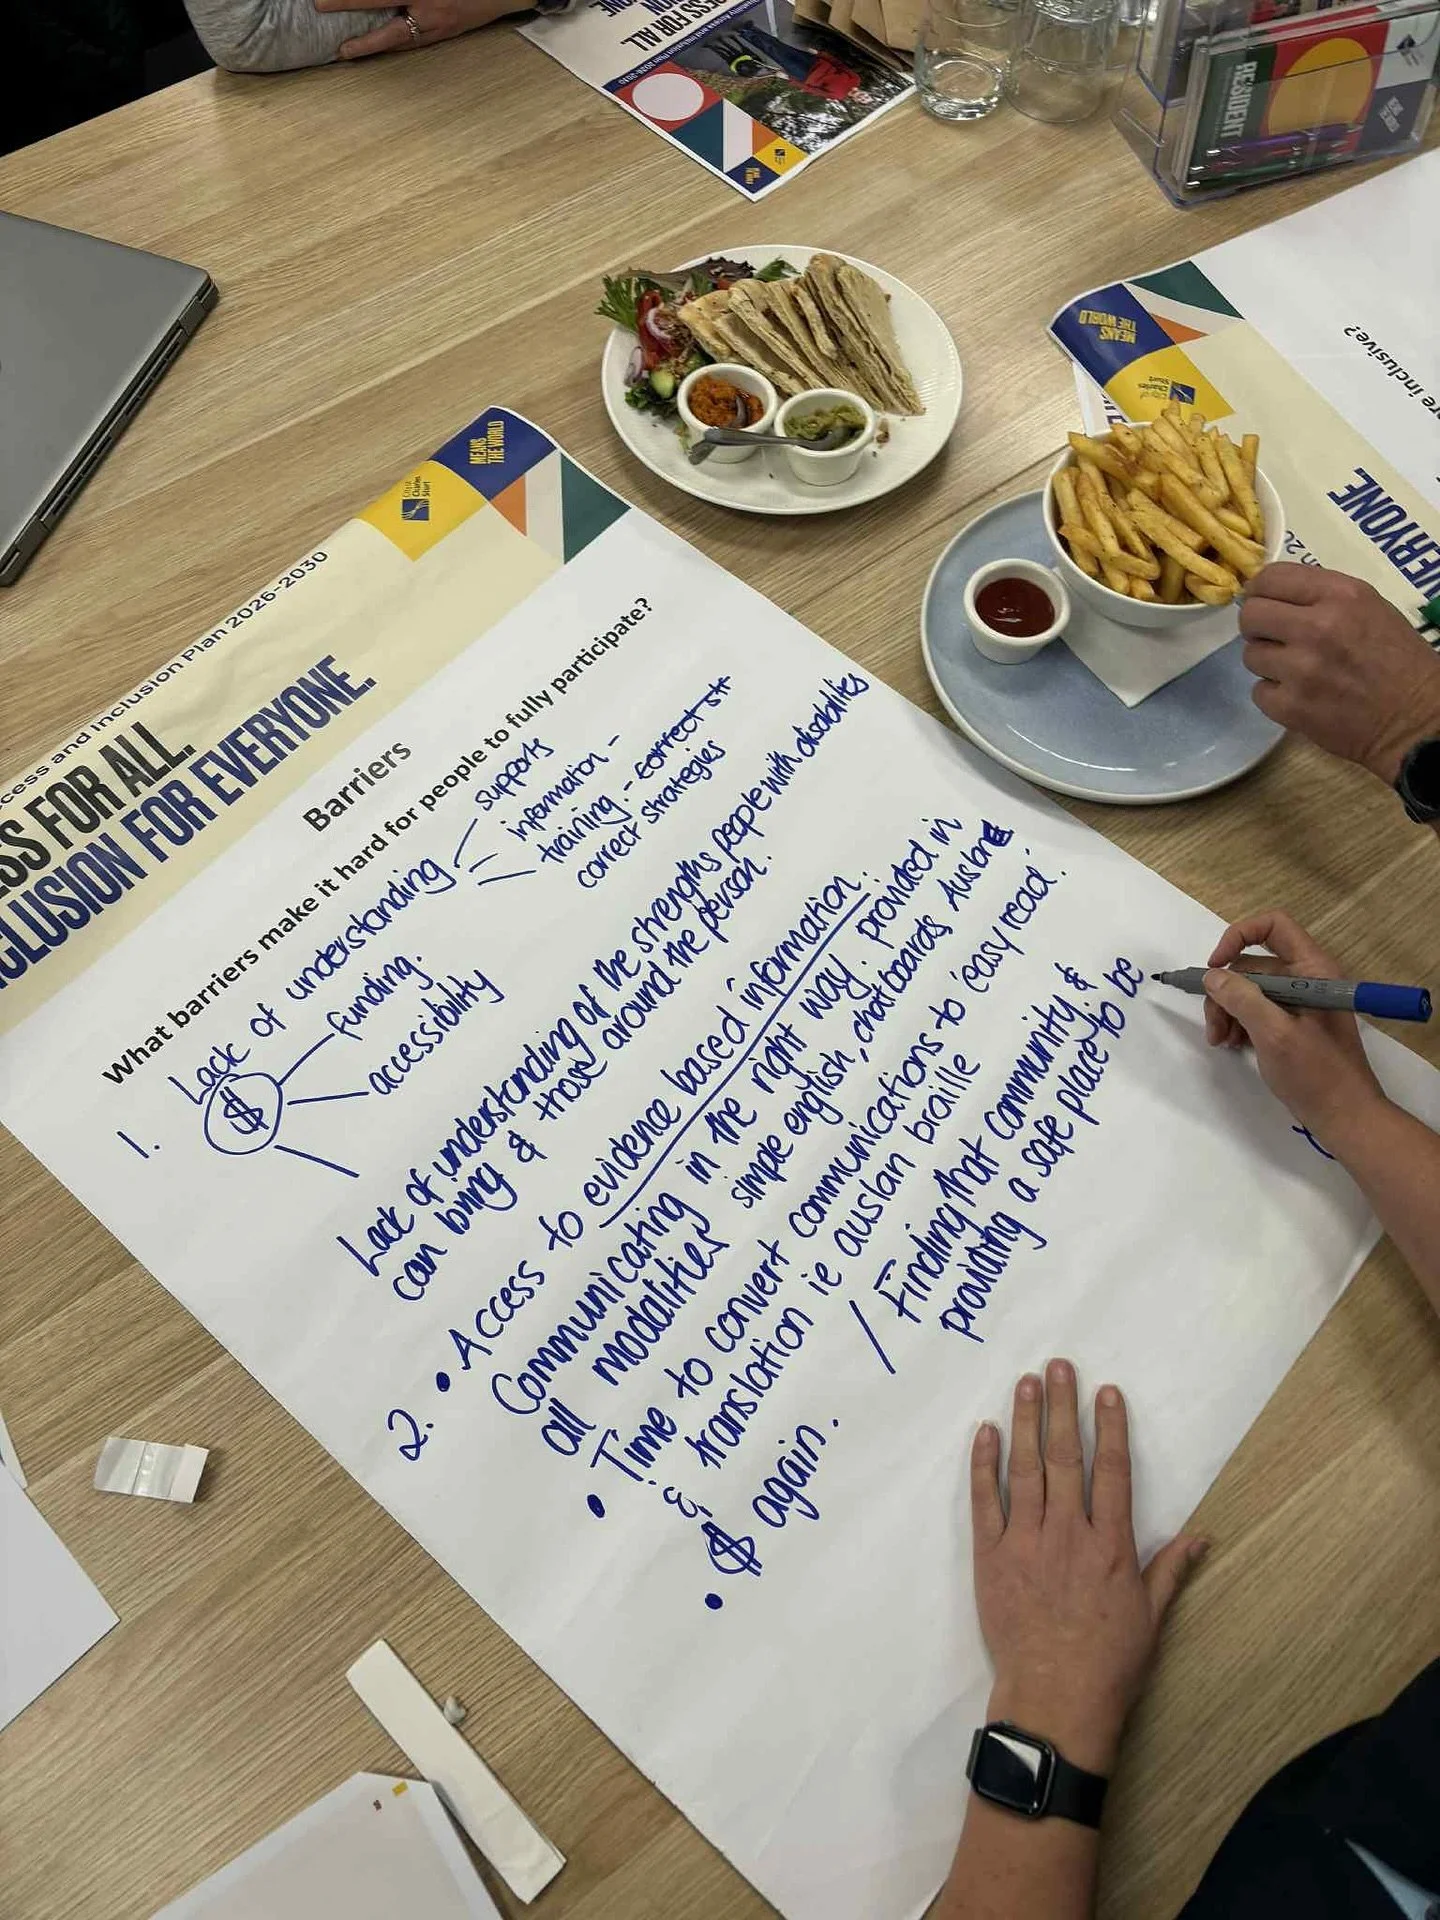 ESS FOR ALL.
ION
ONE
Disability Access and Inclusion Plan 2026-2030
MEANS
THE WORLD
RESIDENT
MEANS
THE WORLD
City of
Charles
Sturt
re inclusive?
VERYONE.
n 20
MEANS
THE WORLD
City of
Charles
Sturt
cess and Inclusion Plan 2026-2030
SS FOR ALL.
CLUSION FOR EVERYONE.
Barriers
What barriers make it hard for people to fully participate?
1. Lack of understanding
supports
information -
training. - correct str
correct strategies
$
funding.
accessibility
Lack of understanding of the strengths people with disabilities
can bring & those around the person.
2. • Access to evidence based information.
Communicating in the right way. provided in
all modalities simple english, chatboards Auslan
• Time to convert communications to 'easy read'
& translation ie auslan braille
• $ again.
/ Finding that community &
providing a safe place to be